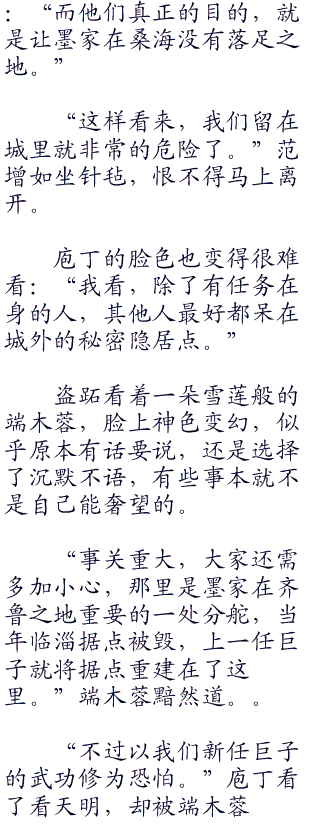 ：“而他们真正的目的，就
是让墨家在桑海没有落足之
地。”
“这样看来，我们留在
城里就非常的危险了。”范
增如坐针毡，恨不得马上离
开。
庖丁的脸色也变得很难
看：“我看，除了有任务在
身的人，其他人最好都呆在
城外的秘密隐居点。”
盗跖看着一朵雪莲般的
端木蓉，脸上神色变幻，似
乎原本有话要说，还是选择
了沉默不语，有些事本就不
是自己能奢望的。
“事关重大，大家还需
多加小心，那里是墨家在齐
鲁之地重要的一处分舵，当
年临淄据点被毁，上一任巨
子就将据点重建在了这
里。”端木蓉黯然道。。
“不过以我们新任巨子
的武功修为恐怕。”庖丁看
了看天明，却被端木蓉